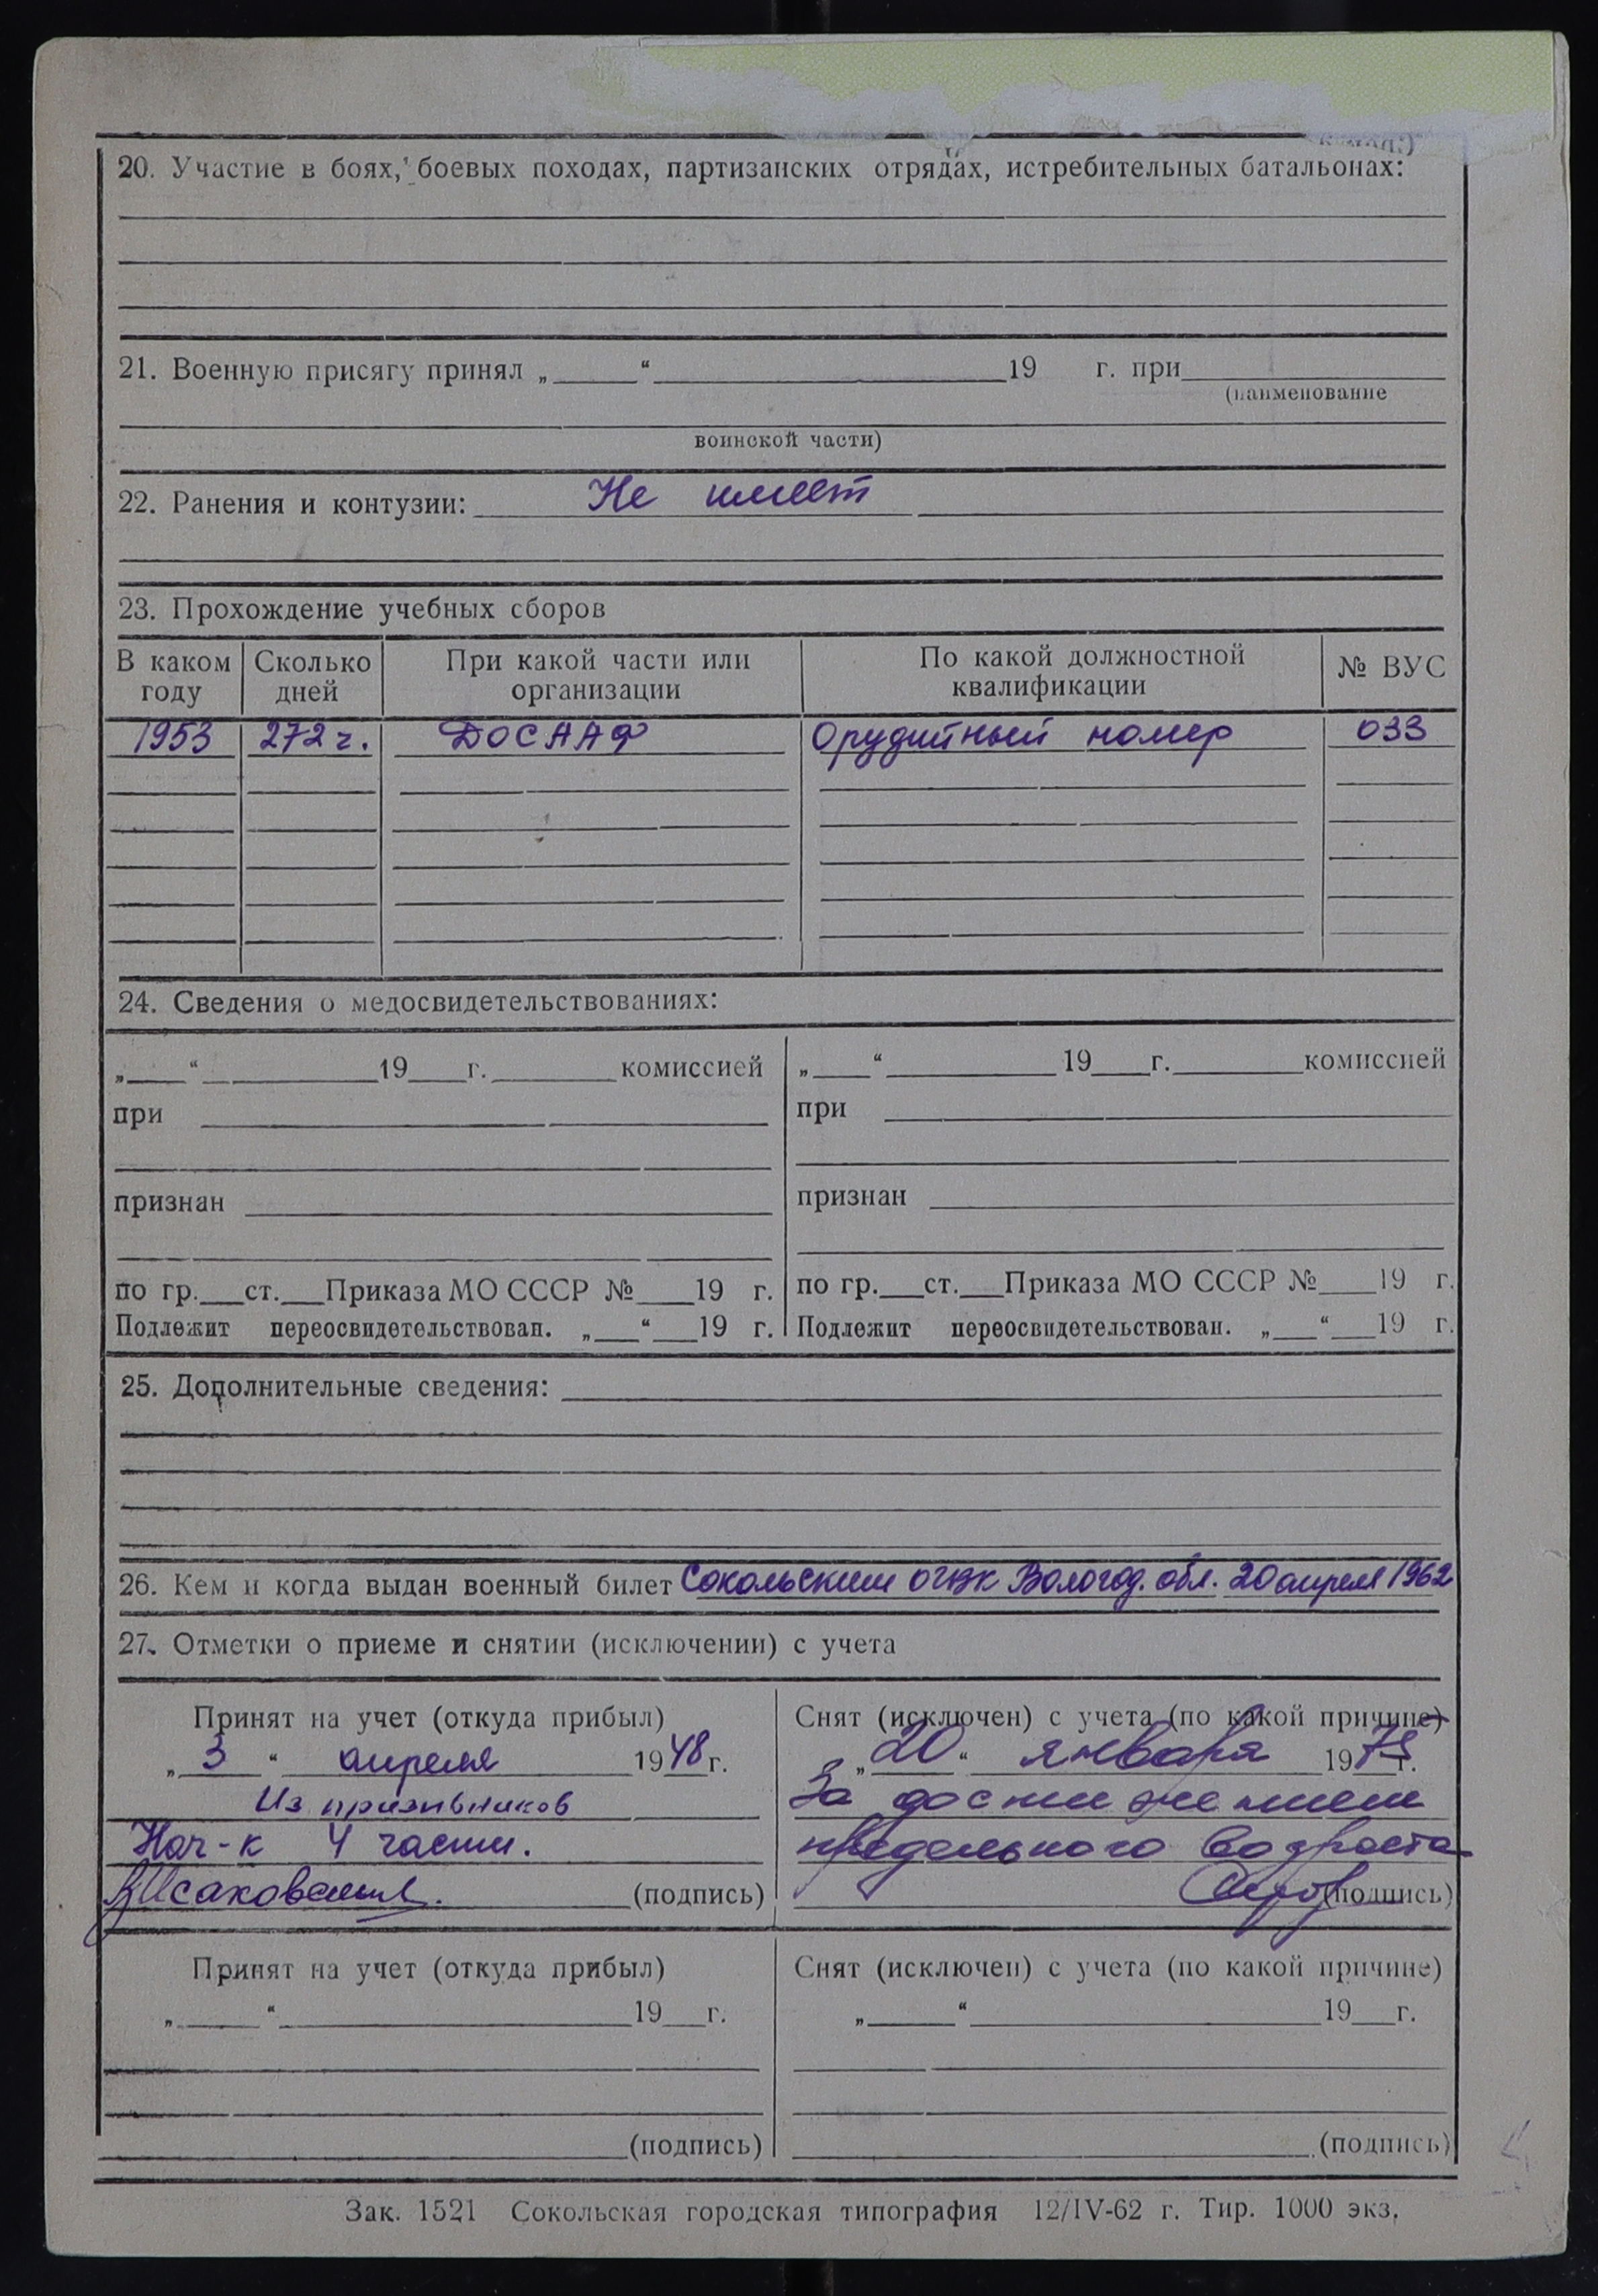 20. Участие в боях, боевых походах, партизанских отрядах, истребительных батальонах:
21. Военную присягу принял „ “ 19 г. при
(наименование
воинской части)
22. Ранения и контузии: Не имеет
23. Прохождение учебных сборов
В каком году Сколько дней При какой части или организации По какой должностной квалификации № ВУС
1953 272 ч. ДОСААФ Орудийный номер 033
24. Сведения о медосвидетельствованиях:
„ “ 19 г. комиссией
при
признан
по гр. ст. Приказа МО СССР № 19 г.
Подлежит переосвидетельствован. „ “ 19 г.
„ “ 19 г. комиссией
при
признан
по гр. ст. Приказа МО СССР № 19 г.
Подлежит переосвидетельствован. „ “ 19 г.
25. Дополнительные сведения:
26. Кем и когда выдан военный билет Сокольским Вологод. обл. 20 апреля 1962
27. Отметки о приеме и снятии (исключении) с учета
Принят на учет (откуда прибыл)
„ 3 “ апреля 1948 г.
Из призывников
Нач-к 4 части.
(подпись)
Снят (исключен) с учета (по какой причине)
„ 20 “ января 1975 г.
За достижением
предельного возраста
(подпись)
Принят на учет (откуда прибыл)
„ “ 19 г.
(подпись)
Снят (исключен) с учета (по какой причине)
„ “ 19 г.
(подпись)
Зак. 1521 Сокольская городская типография 12/IV-62 г. Тир. 1000 экз.